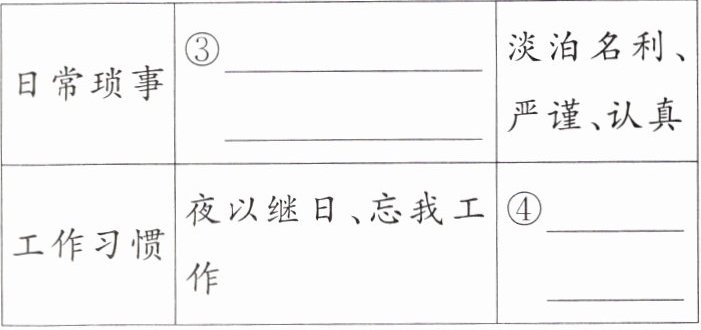 日常琐事
③
淡泊名利、
严谨、认真
工作习惯
夜以继日、忘我工
作
④